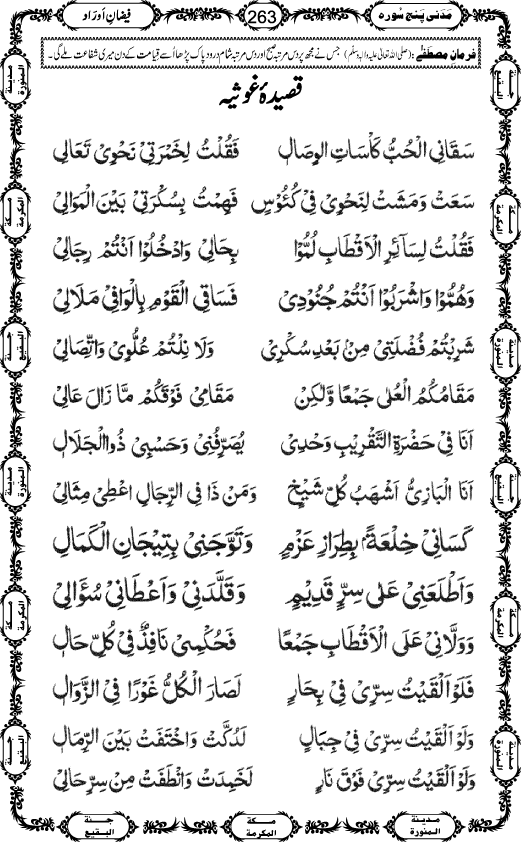 مَدَنی پَنج سُورہ 263 فیضانِ اَوراد
فرمانِ مصطفےٰ : (صلی اللہ تعالیٰ علیہ واٰلہٖ وسلم) جس نے مجھ پر دس مرتبہ صبح اور دس مرتبہ شام درود پاک پڑھا اُسے قیامت کے دن میری شفاعت ملے گی۔
قصیدۂ غوثیہ
سَقَانِی الْحُبُّ کَأْسَاتِ الْوِصَالِ فَقُلْتُ لِخَمْرَتِیْ نَحْوِیْ تَعَالِی
سَعَتْ وَمَشَتْ لِنَحْوِیْ فِیْ کُئُوْسٍ فَهِمْتُ بِسُکْرَتِیْ بَیْنَ الْمَوَالِی
فَقُلْتُ لِسَآئِرِ الْاَقْطَابِ لُمُّوْا بِحَالِیْ وَادْخُلُوْا اَنْتُمْ رِجَالِیْ
وَهُمُّوْا وَاشْرَبُوْا اَنْتُمْ جُنُوْدِیْ فَسَاقِی الْقَوْمِ بِالْوَافِیْ مَلَالِیْ
شَرِبْتُمْ فُضْلَتِیْ مِنْ بَعْدِ سُکْرِیْ وَلَا نِلْتُمْ عُلُوِّیْ وَاتِّصَالِیْ
مَقَامُکُمُ الْعُلٰی جَمْعًا وَّلٰکِنْ مَقَامِیْ فَوْقَکُمْ مَّا زَالَ عَالِیْ
اَنَا فِیْ حَضْرَةِ التَّقْرِیْبِ وَحْدِیْ یُصَرِّفُنِیْ وَحَسْبِیْ ذُوالْجَلَالِ
اَنَا الْبَازِیُّ اَشْهَبُ کُلِّ شَیْخٍ وَمَنْ ذَا فِی الرِّجَالِ اُعْطِیَ مِثَالِیْ
کَسَانِیْ خِلْعَةً بِطِرَازِ عَزْمٍ وَتَوَّجَنِیْ بِتِیْجَانِ الْکَمَالِ
وَاَطْلَعَنِیْ عَلٰی سِرٍّ قَدِیْمٍ وَقَلَّدَنِیْ وَاَعْطَانِیْ سُؤَالِیْ
وَوَلَّانِیْ عَلَی الْاَقْطَابِ جَمْعًا فَحُکْمِیْ نَافِذٌ فِیْ کُلِّ حَالِ
فَلَوْ اَلْقَیْتُ سِرِّیْ فِیْ بِحَارٍ لَصَارَ الْکُلُّ غَوْرًا فِی الزَّوَالِ
وَلَوْ اَلْقَیْتُ سِرِّیْ فِیْ جِبَالٍ لَدُکَّتْ وَاخْتَفَتْ بَیْنَ الرِّمَالِ
وَلَوْ اَلْقَیْتُ سِرِّیْ فَوْقَ نَارٍ لَخَمِدَتْ وَانْطَفَتْ مِنْ سِرِّ حَالِیْ
جنة البقیع
مكة المكرمة
مدينة المنورة
جنة البقیع
مكة المكرمة
مدينة المنورة
مدينة المنورة
مكة المكرمة
جنة البقیع
مدينة المنورة
مكة المكرمة
جنة البقیع
مدينة المنورة
مكة المكرمة
جنة البقیع